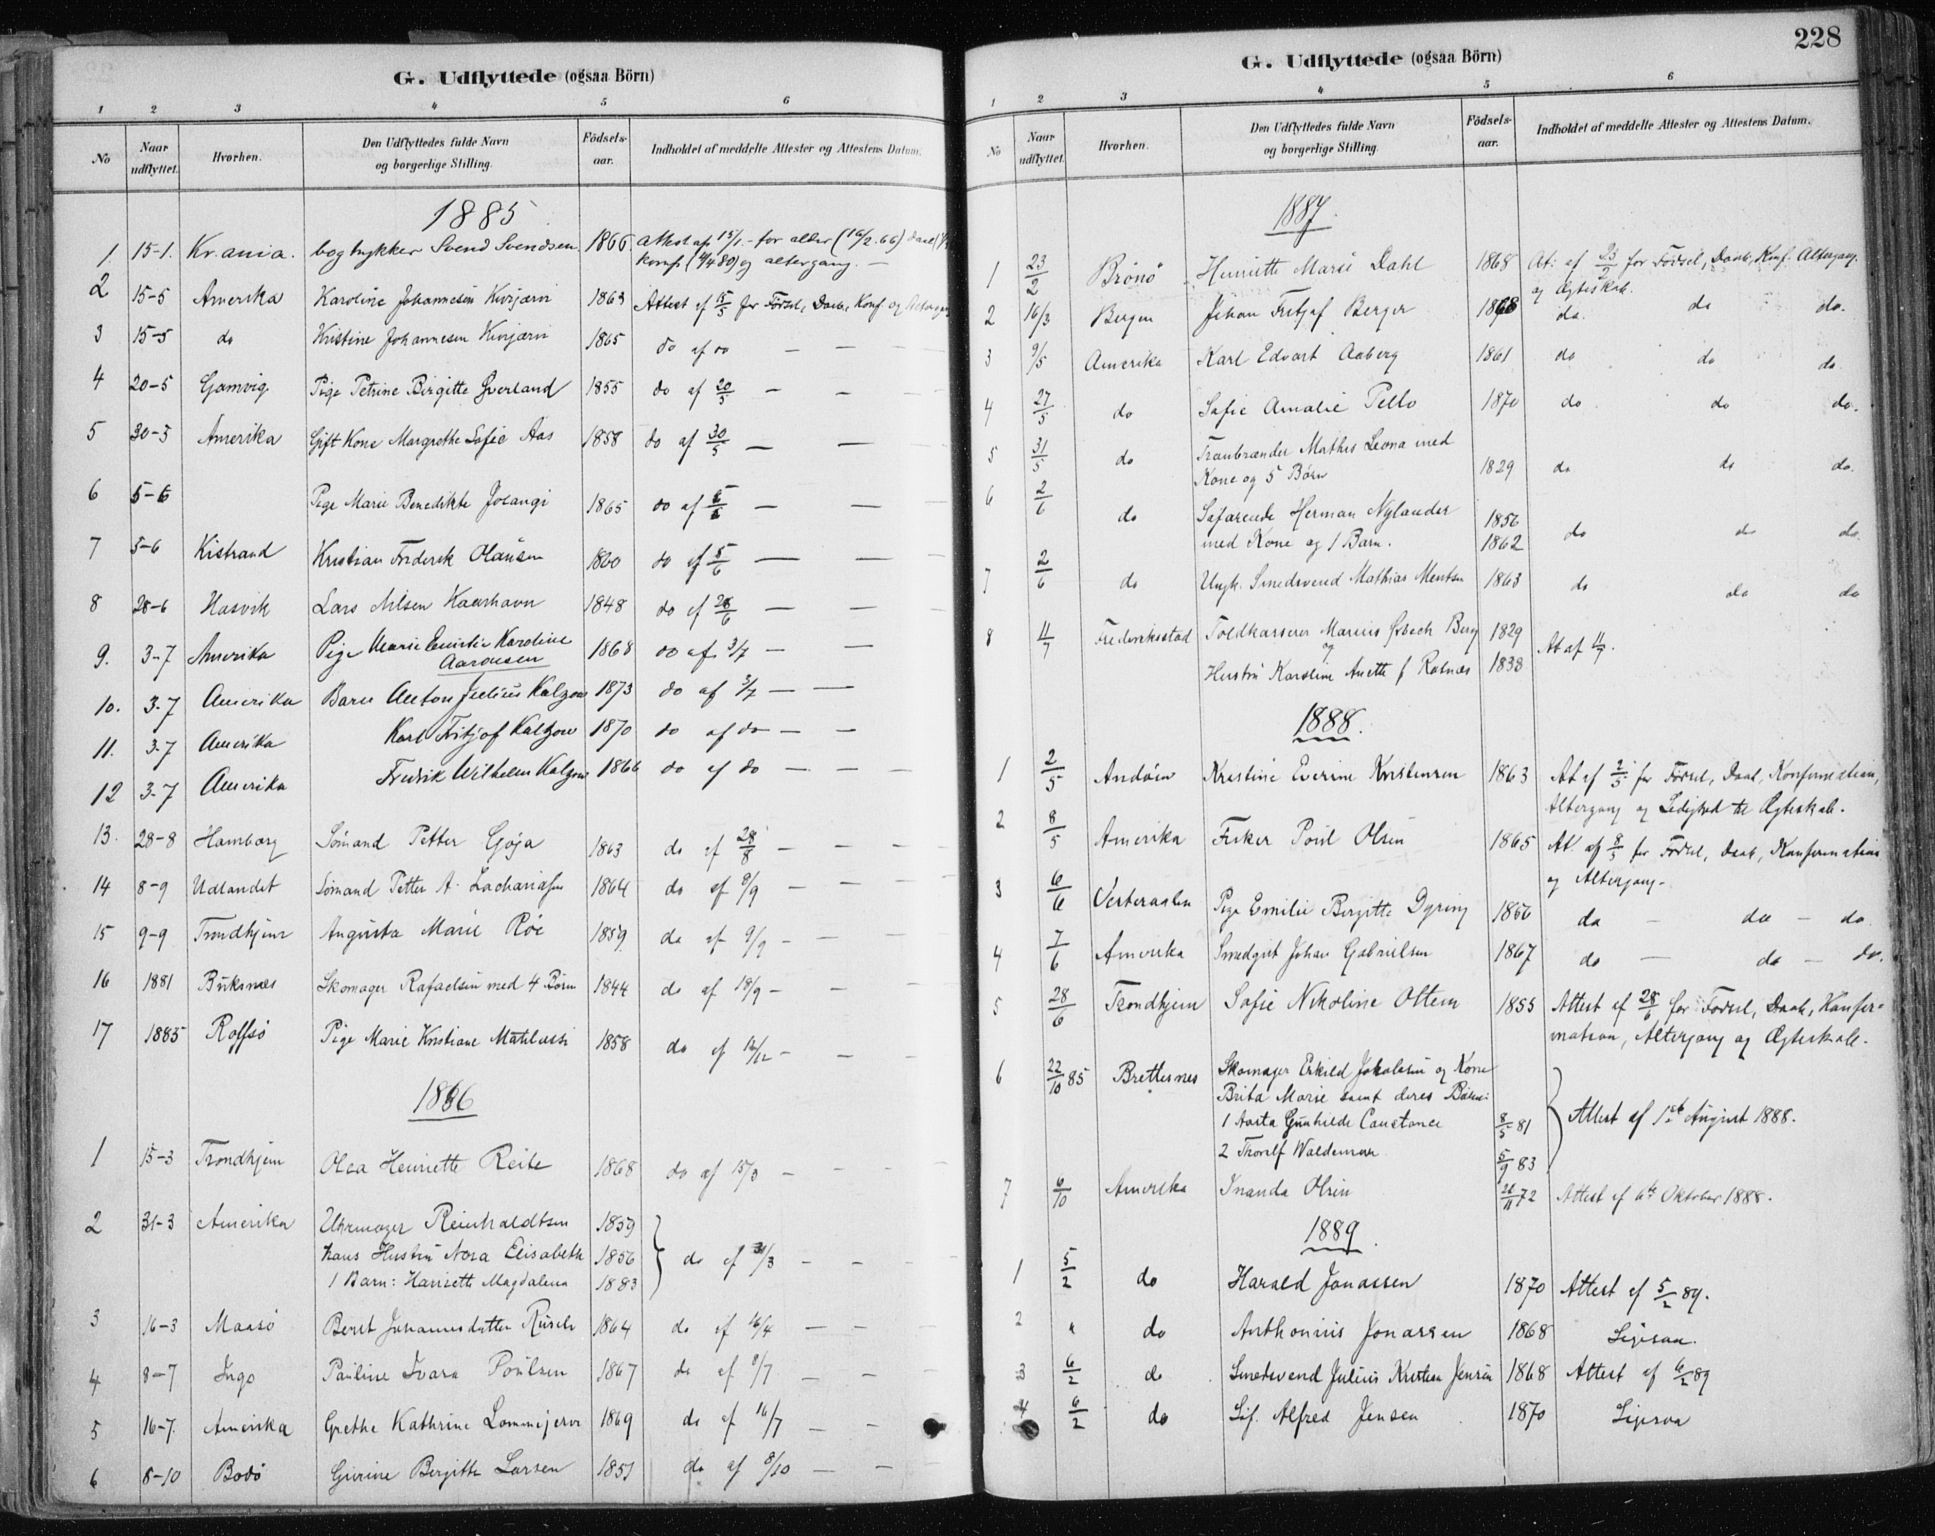 G. Udflyttede (ogsaa Börn)
1 2 3 4 5 6
No Naar udflyttet. Hvorhen. Den Udflyttedes fulde Navn og borgerlige Stilling. Födsels-aar. Indholdet af meddelte Attester og Attestens Datum.
1885
1. 15-1. Kr.ania. bogtrykker Svend Svendsen 1866 attest af 15/1 - for alder (16/2.66) daab
konf. (4/4 80) og altergang. —
2 15-5 Amerika Karoline Johannesen Kivijærvi 1863 Attest af 15/5 for Födsel, Daab, Konf og Altergang
3 15-5 do Kristine Johannesen Kivijærvi 1865 do af do — — —
4 20-5 Gamvig Pige Petrine Birgitte Överland 1855 do af 20/5 — — —
5 30-5 Amerika Gift Kone Margrethe Sofie Aas 1858 do af 30/5 — —
6 5-6 Pige Marie Benedikte Josangi 1865 do af 5/6 — — —
7 5-6 Kistrand Kristian Frederik Olausen 1860 do af 5/6 — —
8 28-6 Hasvik Lars Nilsen Kaarhavn 1848 do af 28/6 — —
9. 3-7 Amerika Pige Marie Emilie Karoline
Aaronsen 1868 do af 3/7 — —
10. 3-7 Amerika Barn Anton Julius Kalzow 1873 do af 3/7 — —
11. 3-7 Amerika Karl Fritjof Kalzow 1870 do af do — —
12 3-7 Amerika Fredrik Wilhelm Kalzow 1866 do af do — — —
13. 28-8 Hamborg Sömand Petter Gjöja 1863 do af 28/8 — — —
14 8-9 Udlandet Sömand Petter A. Zachariasen 1864 do af 8/9 — — —
15 9-9 Trondhjem Augusta Marie Röe 1859. do af 9/9 - — —
16 1881 Buksnæs Skomager Rafaelsen med 4 Börn 1844 do af 18/9 - — —
17 1885 Rolfsö Pige Marie Kristiane Mathilassi 1858 do af 12/12 - — —
1886
1 15-3 Trondhjem Olea Henriette Reite 1868 do af 15/3 — — —
2 31-3 Amerika Uhrmager Reinholdtsen 1859
hans Hustru Nora Elisabeth 1856 do af 31/3 — — —
1 Barn: Henriette Magdalena 1883
3 16-3 Maasö Beret Johannesdatter Rusch 1864 do af 16/4 — — —
4 8-7 Ingö Pauline Ivara Poulsen 1867 do af 8/7 — — —
5 16-7. Amerika Grethe Kathrine Lommijervi 1869 do af 16/7 — —
6 8-10 Bodö Gurine Bergitte Larsen 1851 do af 8/10 — — —
228
G. Udflyttede (ogsaa Börn)
1 2 3 4 5 6
No Naar udflyttet. Hvorhen. Den Udflyttedes fulde Navn og borgerlige Stilling. Födsels-aar. Indholdet af meddelte Attester og Attestens Datum.
1887.
1 23/2 Brönö Henriette Marie Dahl 1868 At. af 23/2 for Födsel, Daab, Konf. Altergang.
og Ægteskab.
2 16/3 Bergen Johan Fritjof Berger 1868 do. do do.
3 9/5 Amerika Karl Edvart Aaberg 1861 do do do.
4 27/5 do Sofie Amalie Pello 1870 do do do.
5 31/5 do Tranbrænder Mathis Leona med
Kone og 5 Börn 1829 do do do.
6 2/6 do Söfarende Herman Nylander 1856
med Kone og 1 Barn. 1862 do do do.
7 2/6 do Ungk. Smedsvend Mathias Mentsen 1863 do do do
8 11/7 Frederiksstad Toldkasserer Marius Berg 1829 At af 11/7.
og
Hustru Karoline Anette f Rotnæs 1838
1888.
1 2/5 Andöen Kristine Everine Kristensen 1863 At af 2/5 for Födsel, Daab, Konfirmation,
Altergang og Ledighed til Ægteskab.
2 8/5 Amerika Fisker Poul Olsen 1865 At. af 8/5 for Födsel, Daab, Konfirmation
og Altergang.
3 6/6 Vesteraalen Pige Emilie Bergitte Dyring 1866 do — do — do
4 7/6 Amerika Smedgut Johan Gabrielsen 1867 do — do — do.
5 28/6 Trondhjem Sofie Nikoline Oltem 1855 Attest af 28/6 for Födsel, Daab, Konfir-
mation, Altergang og Ægteskab.
6 22/10 85 Brettesnes Skomager Erkild Jakobsen og Kone
Brita Marie samt deres Börn:
1 Aasta Gunhilde Constance 8/5 81 Attest af 1ste August 1888.
2 Thorolf Waldemar 5/9 83
7 6/10 Amerika Inanda Olsen 26/11 72 Attest af 6te Oktober 1888.
1889.
1 5/2 do Harald Jonassen 1870 Attest af 5/2 89.
2 " do Anthonius Jonassen 1868 Ligesaa.
3 6/2 do Smedsvend Julius Kristian Jensen 1868 Attest af 6/2 89
4 6/2 do Alfred Jensen 1870 Ligesaa